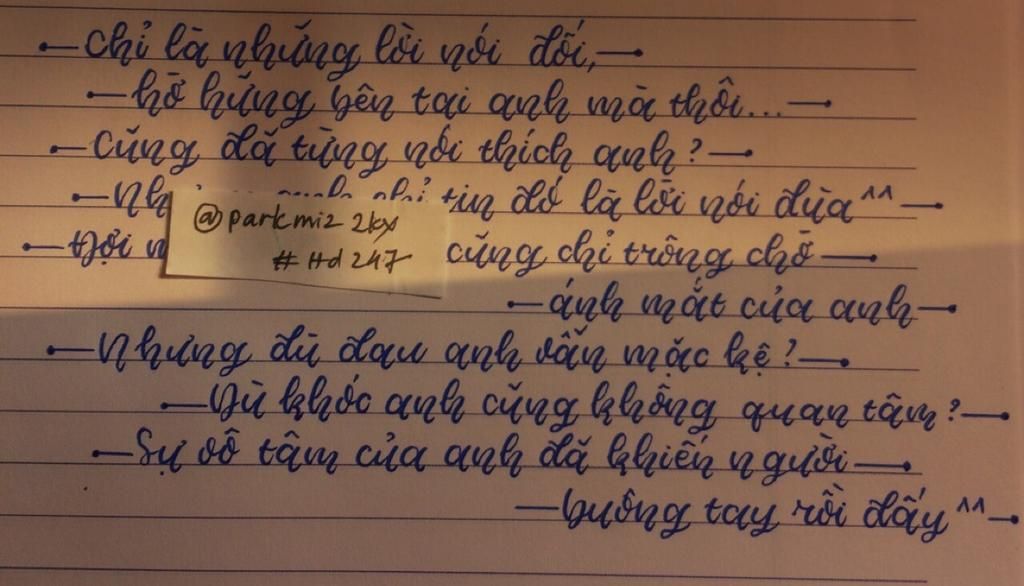 Chỉ là những lời nói dối,
hờ hững bên tai anh mà thôi...
Cũng đã từng nói thích anh?
Nh anh chỉ tin đó là lời nói đùa^^
@parkmiz2kx
#Hd247
Đợi cũng chỉ trông chờ
ánh mắt của anh
Nhưng dù đau anh vẫn mặc kệ?
Dù khóc anh cũng không quan tâm?
Sự vô tâm của anh đã khiến người
buông tay rồi đấy^^